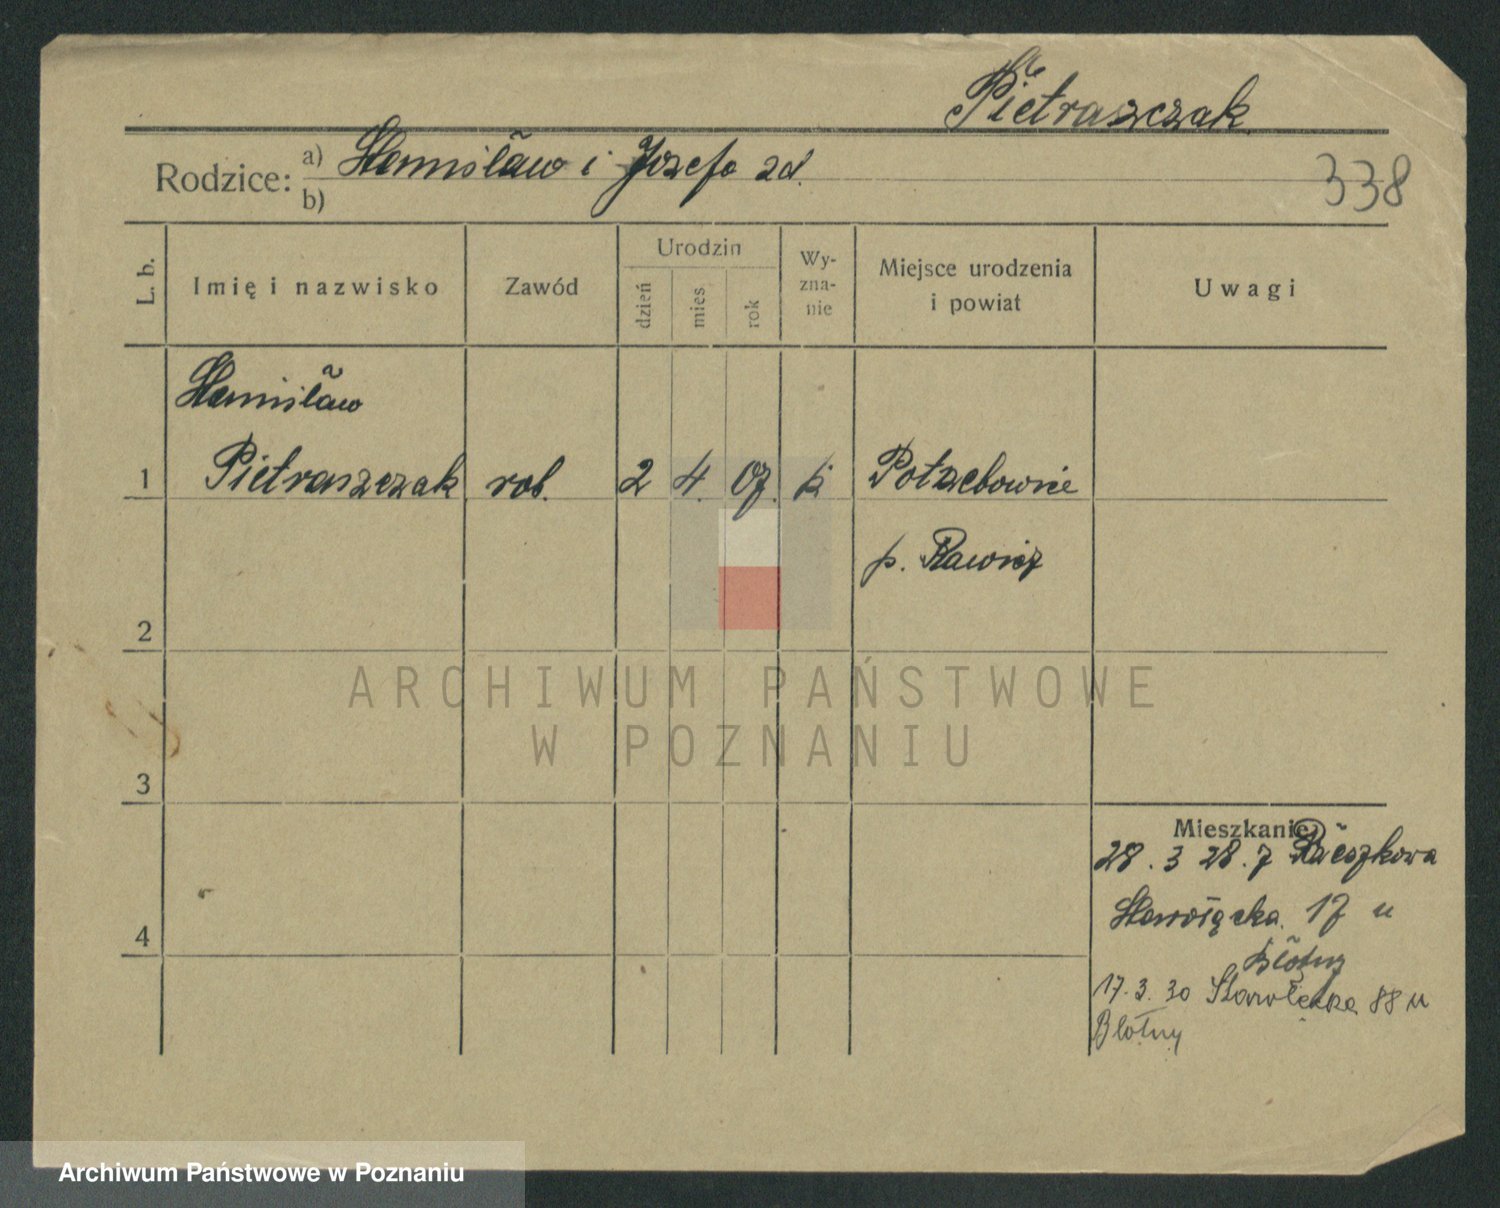 Pietraszczak
Rodzice: a) Stanisław i Józefa zd.
b)
338
L. b. Imię i nazwisko Zawód Urodzin dzień mies. rok Wyznanie Miejsce urodzenia i powiat Uwagi
Stanisław
1 Pietraszczak rob. 2 4. 07. k Potrzebowie
p. Rawicz
2
ARCHIWUM PAŃSTWOWE
W POZNANIU
3
Mieszkanie
28. 3 28. z
4
Starołęcka 17 u
Błotny
17. 3. 30 Starołęcka 88 u
Błotny
Archiwum Państwowe w Poznaniu